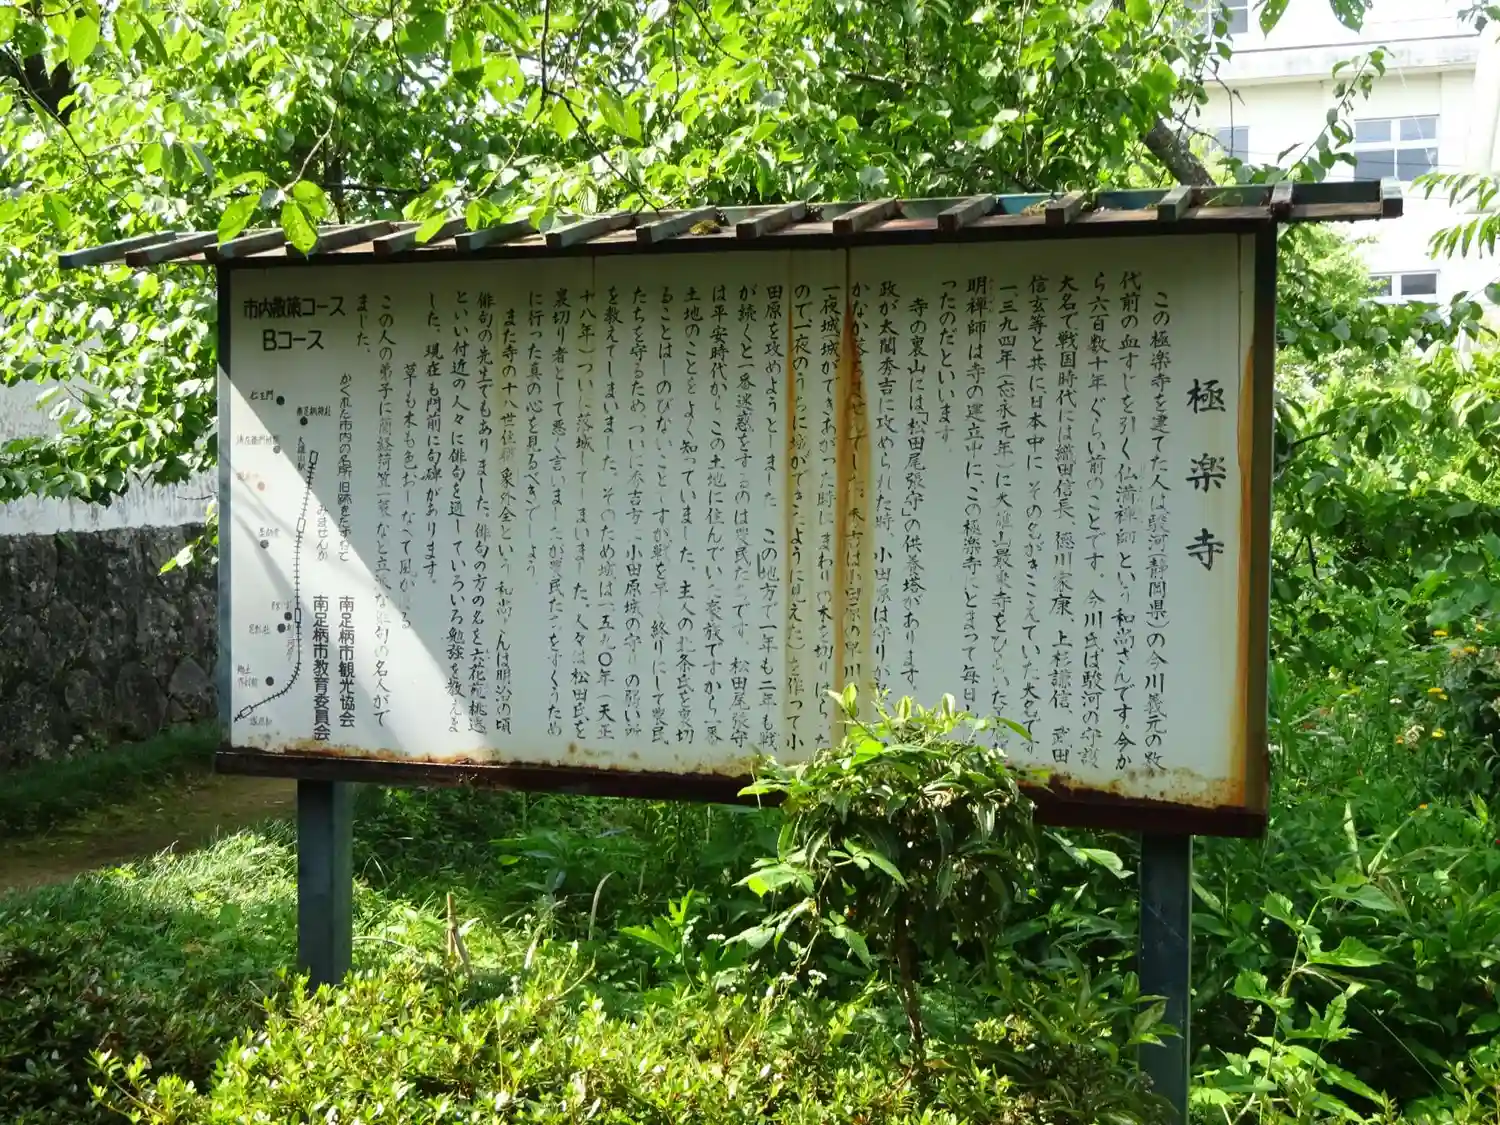 極楽寺
この極楽寺を建てた人は駿河(静岡県)の今川義元の数
代前の血すじを引く仏満禅師という和尚さんです。今か
ら六百数十年ぐらい前のことです。今川氏は駿河の守護
大名で戦国時代には織田信長、徳川家康、上杉謙信、武田
信玄等と共に日本中に、その名がきこえていた大名です
一三九四年(応永元年)に大雄山最乗寺をひらいた了庵
明禅師は寺の建立中に、この極楽寺にとまって毎日
ったのだといいます。
寺の裏山には「松田尾張守」の供養塔があります。
政が太閤秀吉に攻められた時、小田原は守りが
かなか落ちませんでした。秀吉は小田原の早川
一夜城(城ができあがった時に、まわりの木を切りはらった
ので一夜のうちに城ができたように見えた)を作って小
田原を攻めようとしました。この地方で一年も二年も戦
が続くと一番迷惑をするのは農民たちです。松田尾張守
は平安時代から、この土地に住んでいた豪族ですから一番
土地のことをよく知っていました。主人の北条氏を裏切
ることはしのびないことですが戦を早く終りにして農民
たちを守るため、ついに秀吉方に小田原城の守りの弱い所
を教えてしまいました。そのため城は一五九〇年(天正
十八年)ついに落城してしまいました。人々は松田氏を
裏切り者として悪く言いましたが農民たちをすくうため
に行った真の心を見るべきでしょう。
また寺の十八世住職象外全という和尚さんは明治の頃
俳句の先生でもありました。俳句の方の名を六花苑桃逸
といい付近の人々に俳句を通していろいろ勉強を教えま
した。現在も門前に句碑があります。
草も木も色おしなべて風かほる
この人の弟子に蘭経荷笠一簑など立派な俳句の名人がで
ました。
市内散策コース
Bコース
かくれた市内の名所旧跡をたずねて
みませんか
南足柄市観光協会
南足柄市教育委員会
仁王門
南足柄神社
大雄山駅